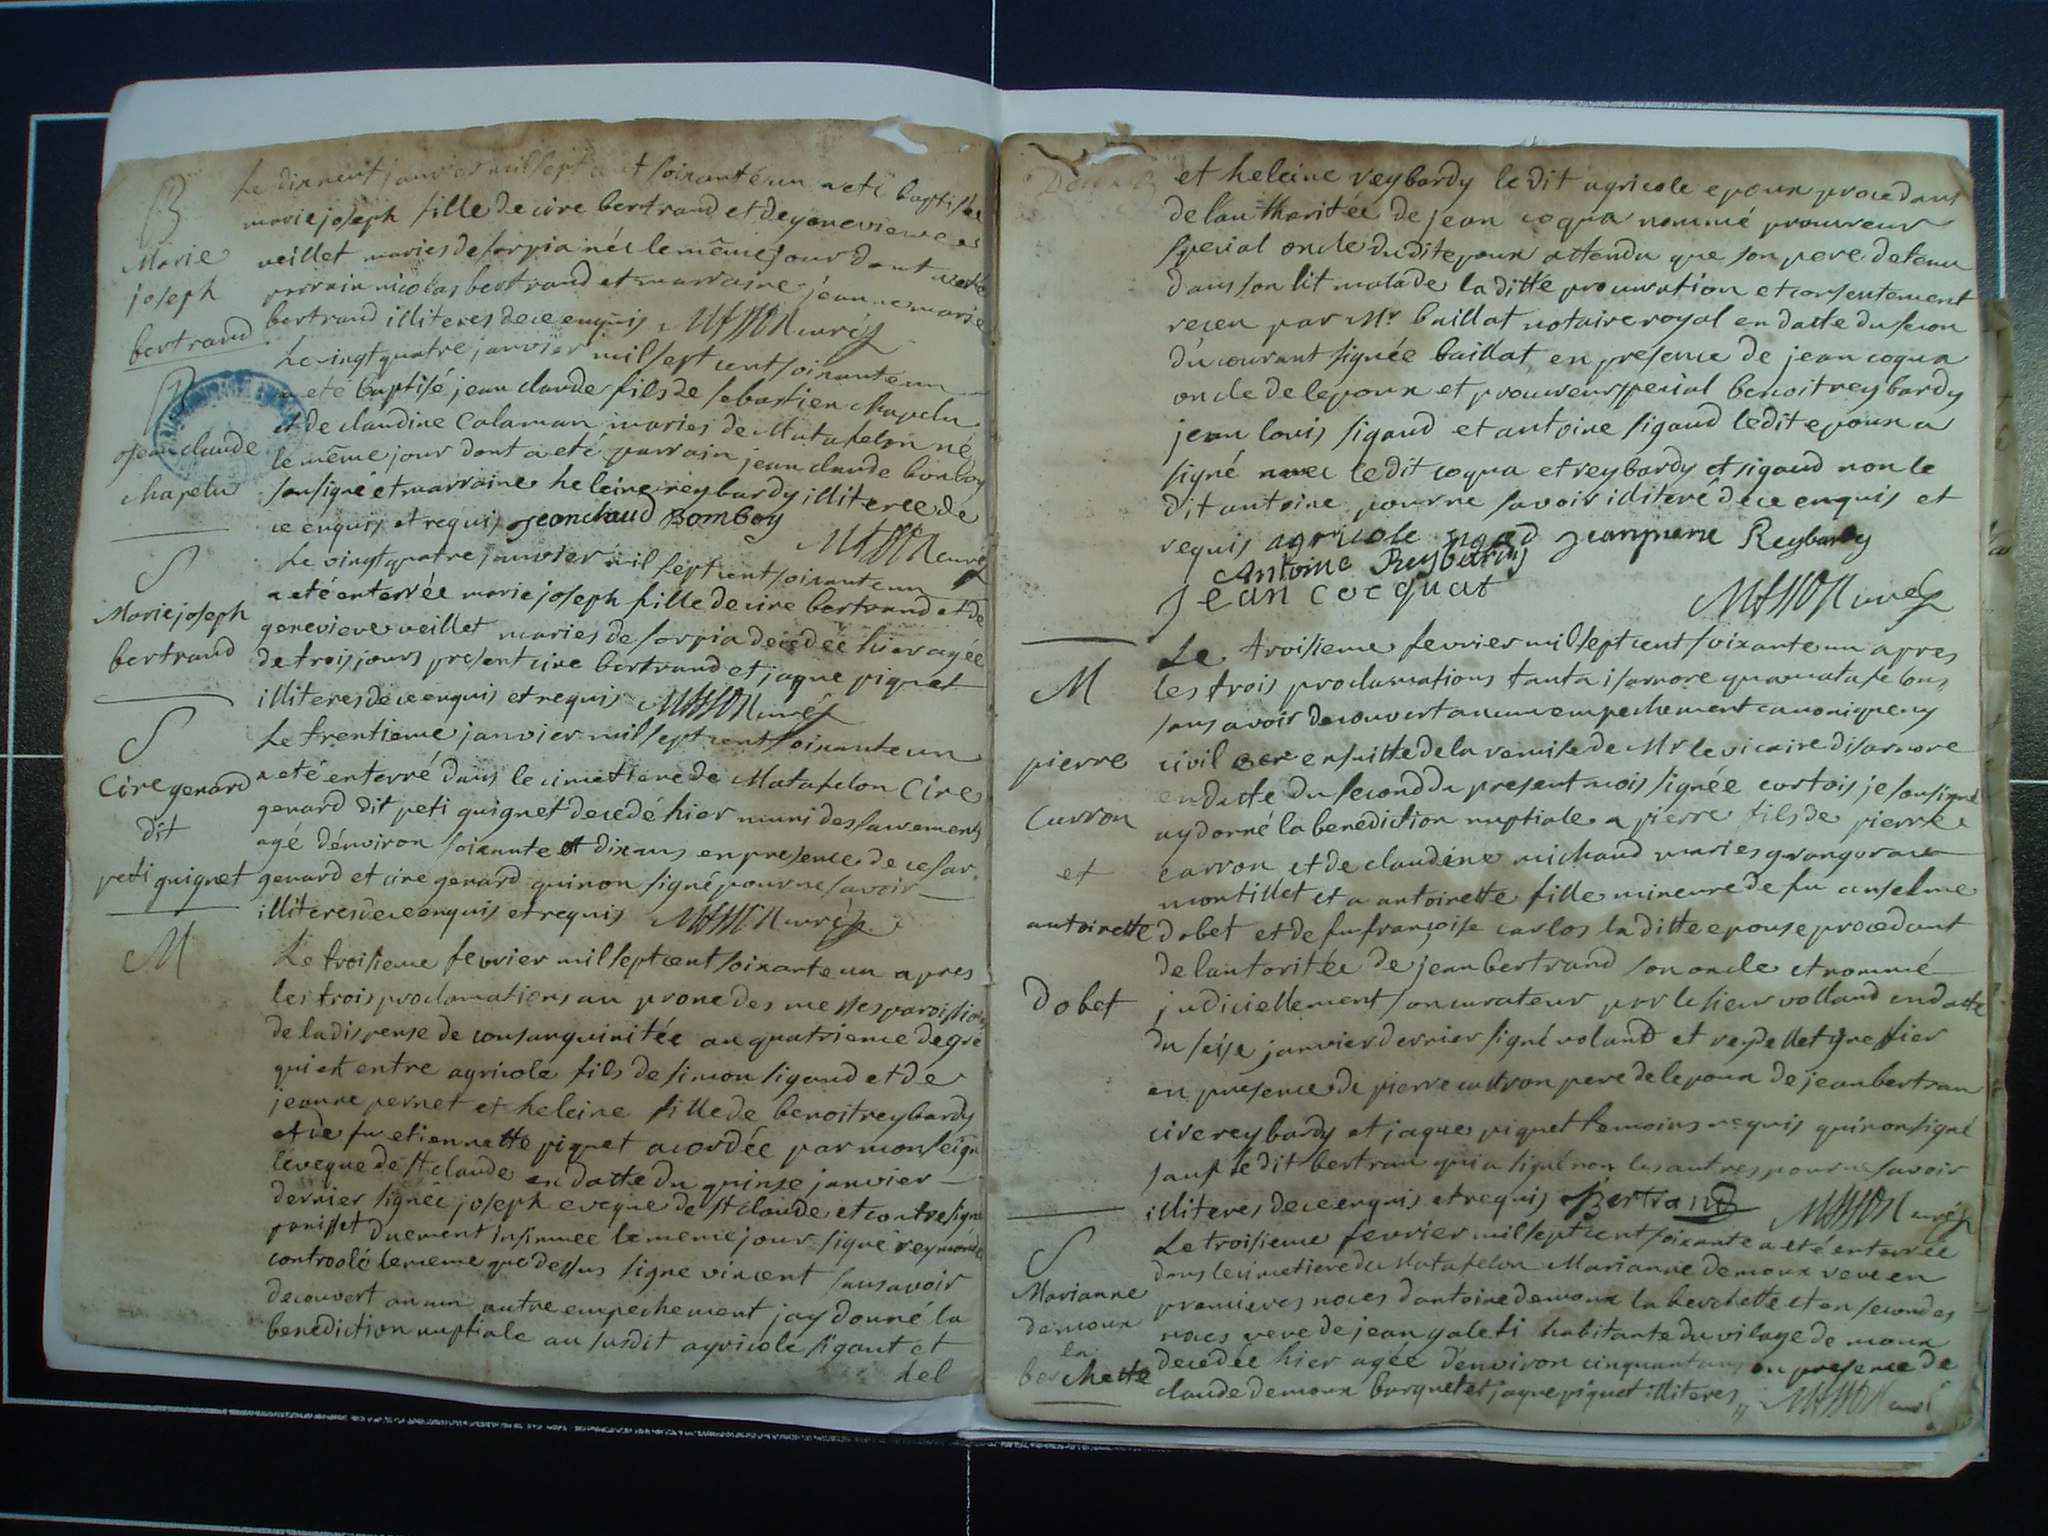 B
Marie
joseph
bertrand
Le dixneuf janvier mil sept cent soixante un a eté baptisée
marie joseph fille de cire bertrand et de genevieve
veillet maries de sorpia née le même jour dont a eté
parrain nicolas bertrand et marraine jeanne marie
bertrand illiteres de ce enquis MASSON curé
B
jean claude
chapelu
Le vingt quatre janvier mil sept cent soixante un
a eté baptisé jean claude fils de sebastien chapelu
et de claudine Calaman maries de Matafelon né
le même jour dont a eté parrain jean claude bonboy
sousigné et marraine heleine reybardy illiteree de
ce enquis et requis jeanclaud Bomboy
MASSON curé
S
Marie joseph
bertrand
Le vingt quatre janvier mil sept cent soixante un
a eté enterrée marie joseph fille de cire bertrand et de
genevieve veillet maries de sorpia decedée hier agée
de trois jours present cire bertrand et jaque piquet
illiteres de ce enquis et requis MASSON curé
S
Cire genard
dit
peti guignet
Le trentieme janvier mil sept cent soixante un
a eté enterré dans le cimettiere de Matafelon Cire
genard dit peti guignet decedé hier muni des sacrements
agé d'environ soixante et dix ans en presence de cesar
genard et cire genard qui non signé pour ne savoir
illiteres de ce enquis et requis MASSON curé
M
Le troisieme fevrier mil sept cent soixante un apres
les trois proclamations au prone des messes paroissiales
de la dispense de consanguinitée au quatrieme degré
qui est entre agricole fils de simon sigaud et de
jeanne pernet et heleine fille de benoit reybardy
et de fu etiennette piquet acordée par monseign
l'eveque de st claude en datte du quinze janvier
dernier signée joseph eveque de st claude et contresigné
panisset duement insinuee le meme jour signé reymond
controolé le meme que dessus signe vincent sans avoir
decouvert aucun autre empechement jay donné la
benediction nuptiale au susdit agricole sigaut et
hel
et heleine reybardy le dit agricole epoux procedant
de lautharitée de jean coqua nommé procureur
special oncle dudit epoux attendu que son pere detenu
dans son lit malade la ditte procuration et consentement
receu par Mr baillat notaire royal en datte du secon
du courant signée baillat, en presence de jean coqua
oncle de lepoux et procureur special benoit reybardy
jean louis sigaud et antoine sigaud ledit epoux a
signé avec ledit coqua et reybardy et sigaud non le
dit antoine pour ne savoir illiteré de ce enquis et
requis agricole sigod jeanpierre Reybardy
Antoine Reybardy
Jean cocquat
MASSON curé
M
pierre
Curron
et
antoinette
dobet
Le troisieme fevrier mil sept cent soixante un apres
les trois proclamations tant a isarnore qua matafelons
sans avoir decouvert aucun empechement canonique ny
civil et ensuitte de la remise de Mr le vicaire disarnore
en datte du second du present mois signée cortois je sousigné
ay donné la benediction nuptiale a pierre fils de pierre
carron et de claudine michaud maries
montillet et a antoinette fille mineure de fu anselme
dobet et de fu françoise carlos la ditte epouse procedant
de lautoritée de jean bertrand son oncle et nommé
judiciellement son curateur par le sieur volland en datte
du seise janvier dernier signé voland et reydellet greffier
en presence de pierre curron pere de lepoux de jean bertran
cire reybardy et jaque piquet temoins requis qui non signé
sauf ledit bertran qui a signé non les autres pour ne savoir
illiteres de ce enquis et requis Bertrand MASSON curé
S
Marianne
demoux
la
berchette
Le troisieme fevrier mil sept cent soixante a eté enterrée
dans le cimetiere de Matafelon Marianne demoux veve en
premieres noces dantoine demoux la berchette et en secondes
noces veve de jean galeti habitante du vilage de moux
decedée hier agée d'environ cinquant ans en presence de
claude demoux barquet et jaque piquet illiteres MASSON curé